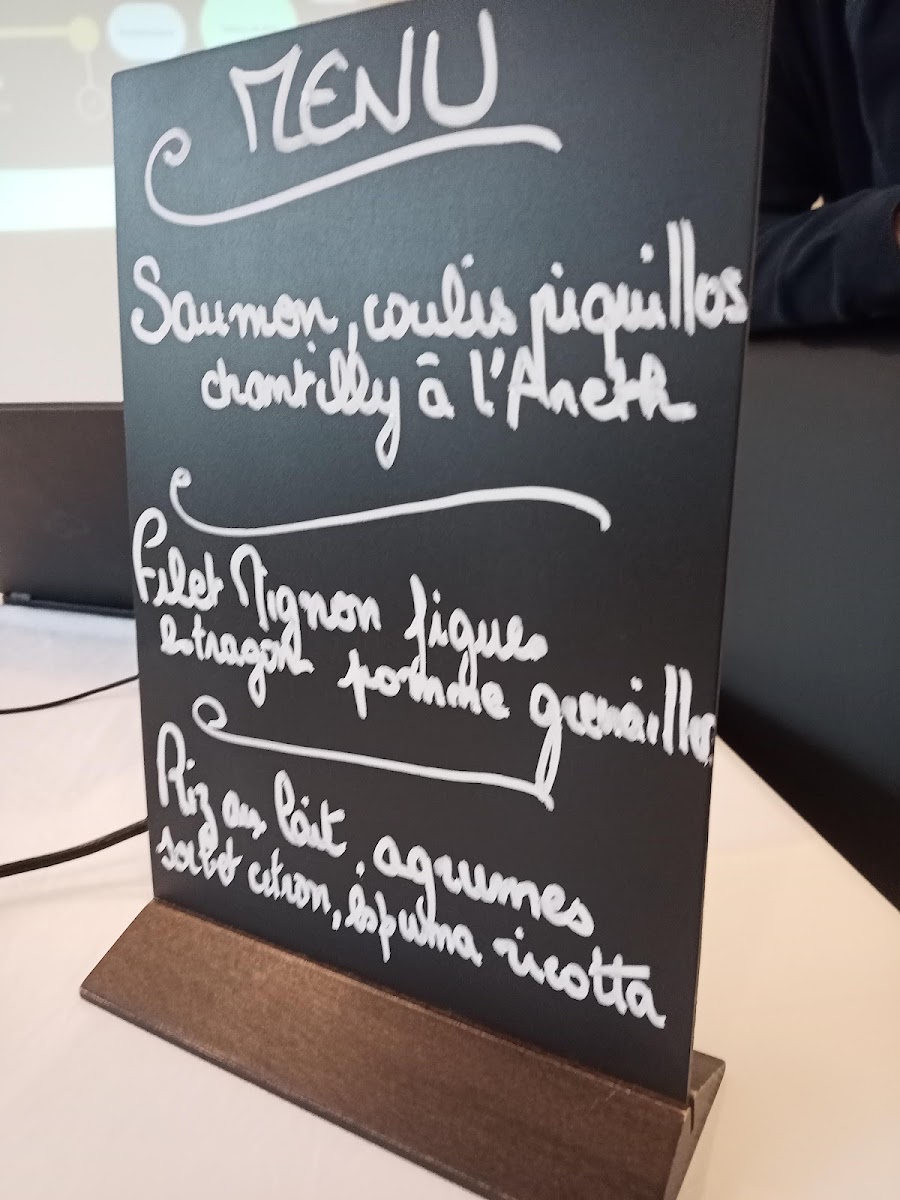 MENU
Saumon, coulis piquillos
chantilly à l'Aneth
Filet Mignon figues
estragon pomme grenailles
Riz au lait, agrumes
sorbet citron, espuma ricotta